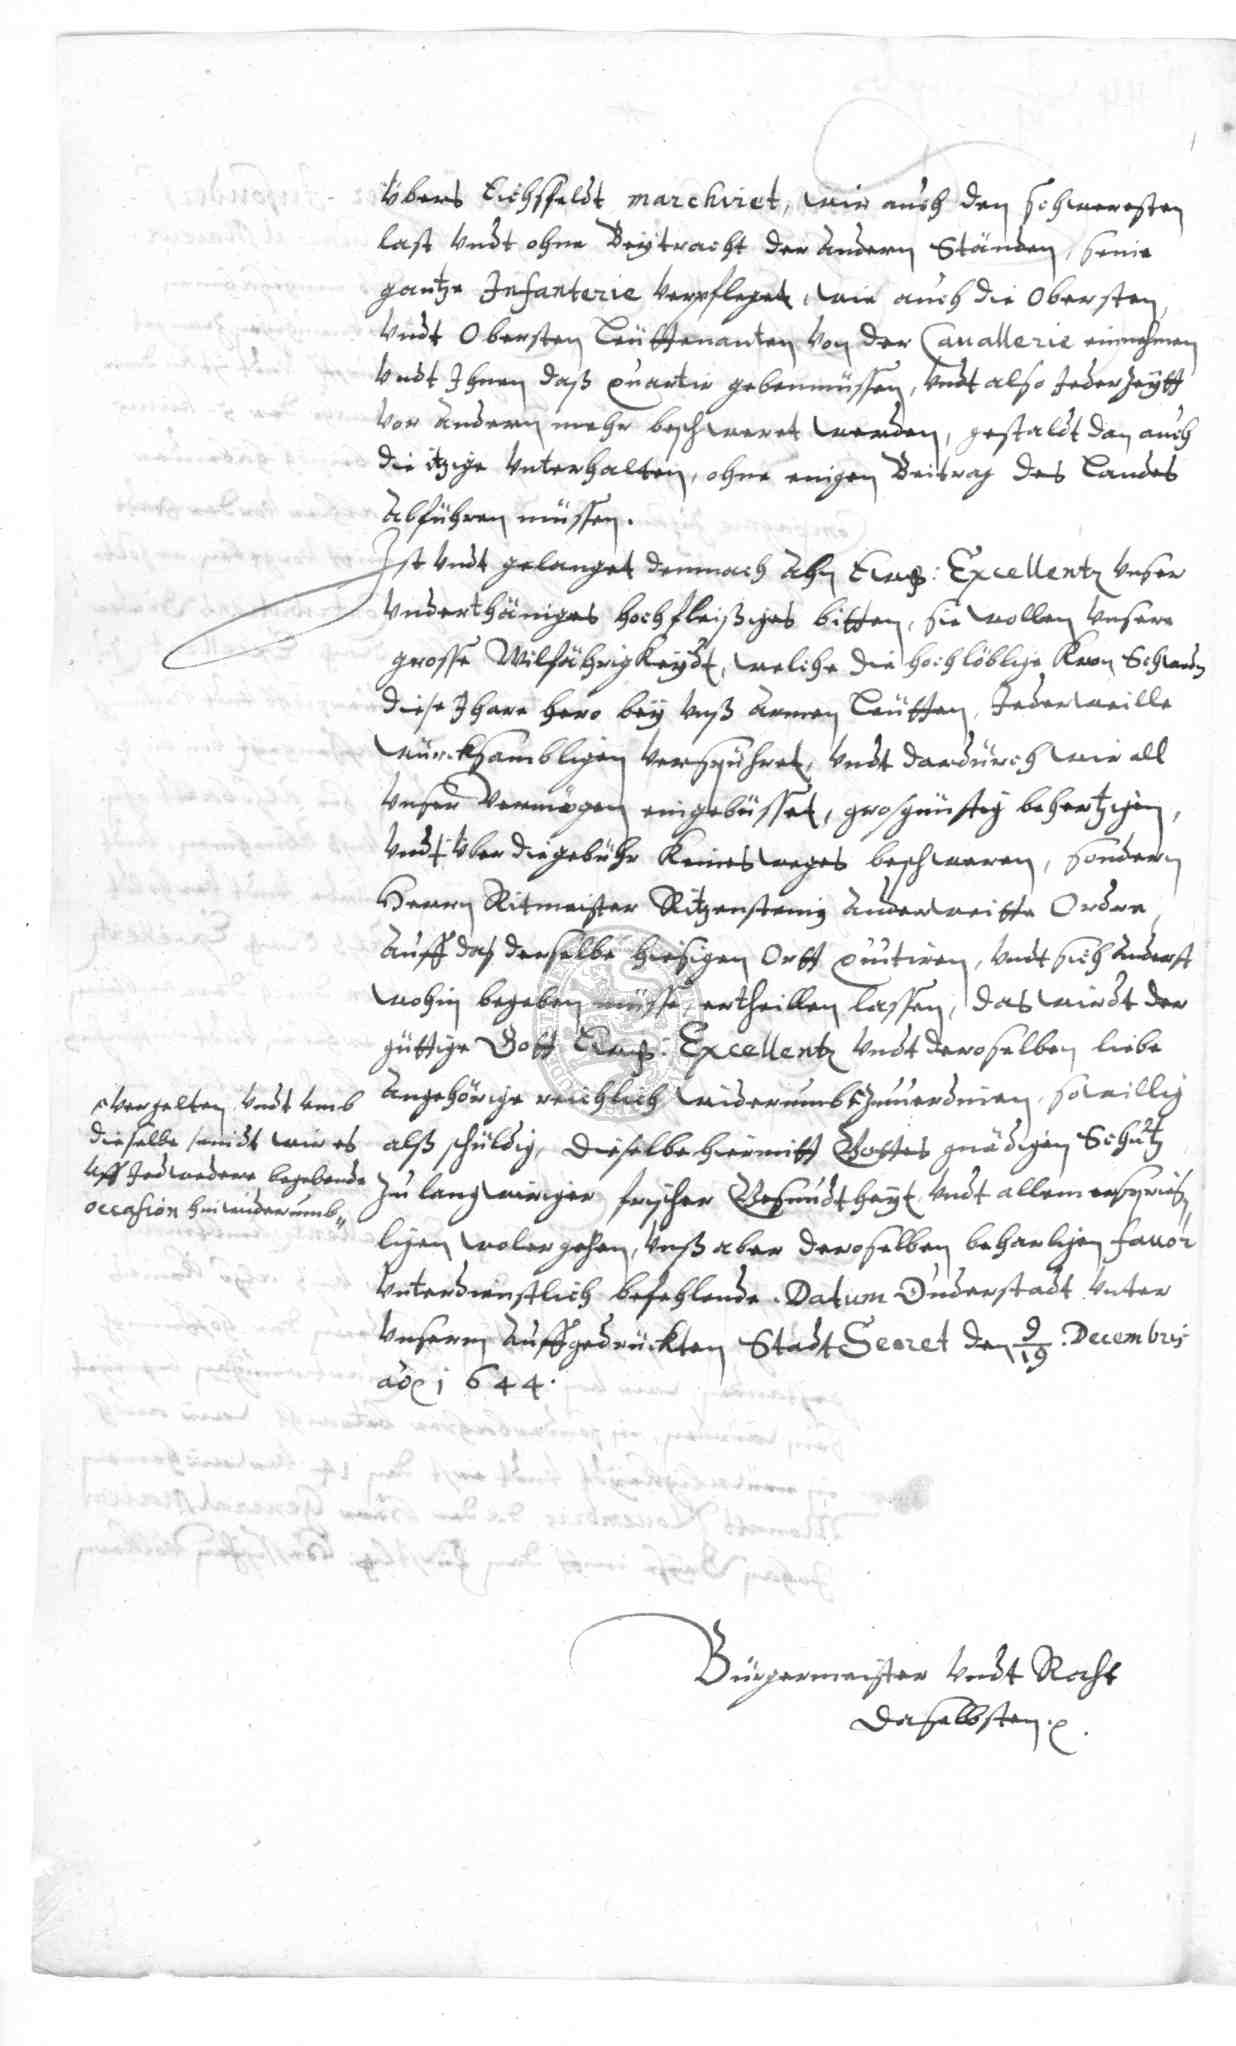 Übers Eichsfeldt marchiret, wir auch den schweresten
last Undt ohne Beÿtracht der andern Ständen, seine
gantze Infanterie verpfleget, wie auch die Obersten,
Undt Obersten Leüttenanten von der Cavallerie einnehmen
Undt Ihnen daß quartir gebenmüssen, Undt also Jederzeÿtt
vor andern mehr beschweret werden, gestaldt dan auch
die itzige Unterhalten, ohne enigen Beitrag des Landes
abführen müssen.
Ist Undt gelanget demnach ahn Ewg: Excellentz Unser
Underthäniges hochfleißiges bitten, sie wollen Unsere
grosse Wilfährigkeÿdt, welche die hochlöblige Kron Schweden
diese Jhare hero beÿ Unß armen Leütten, Jederweille
würcksambligen verspühret, Undt dardürch wir all
Unser Vermögen eingebüsset, grosgünstig behertzigen,
Undt Über diegebühr Keines weges beschweren, sondern
Herrn Ritmeister Ritzenstein anderweitte Ordre,
auff das derselbe hiesigen Ortt quitiren, Undt sich anderst
wohin begeben müsse, ertheillen lassen, das wirdt der
güttige Gott Ewg: Excellentz Undt deroselben liebe
angehörige reichlich widerumb so willig
vergelten Undt Umb
dieselbe seindt wir es
Uff Jedwedere begebende
occasion hinwiderumb
alß schüldig, dieselbe hiermitt Gottes gnädigen Schutz
zu langwiriger frischer Gesundtheÿt Undt allem ersprieß
ligen wolergehen, Unß aber deroselben beharligen favor
Unterdienstlich befehlende. Datum Duderstadt Unter
Unserm auffgedrückten Stadt Secret den 9/19. Decembris
ao 1644.
Bürgermeister Undt Raht
daselbsten.